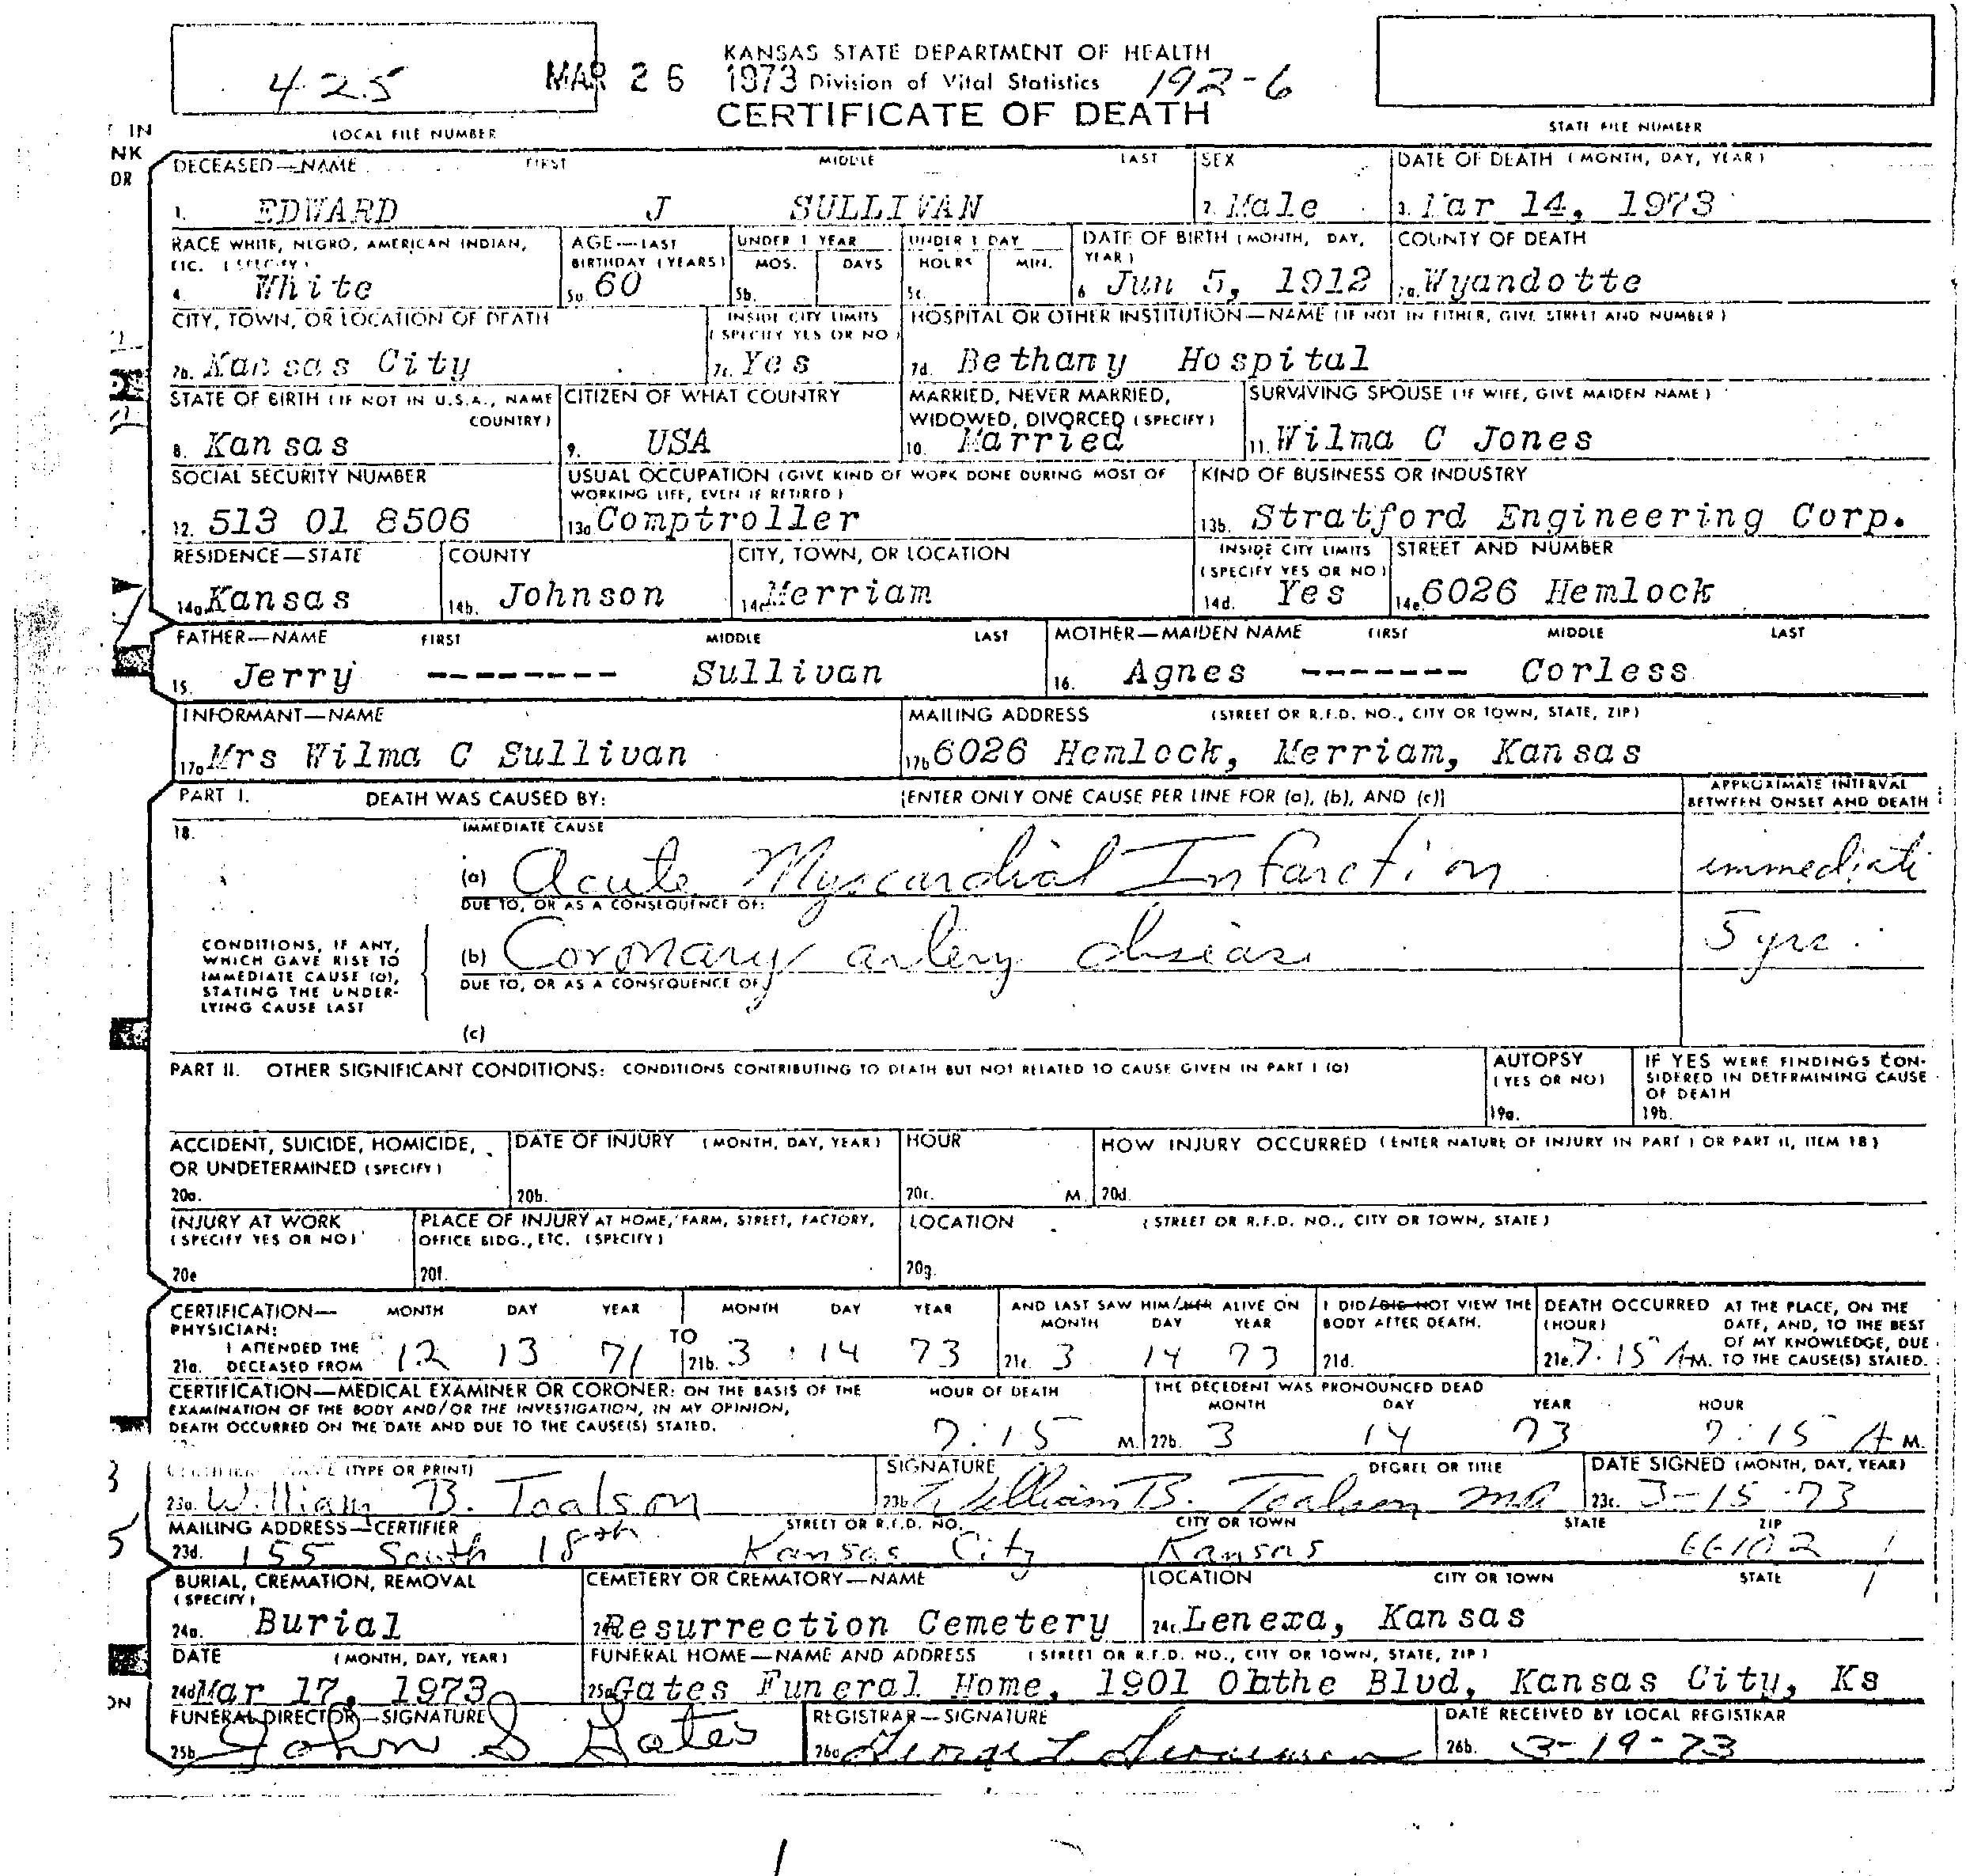 KANSAS STATE DEPARTMENT OF HEALTH
425 MAR 26 1973 Division of Vital Statistics 192-6
CERTIFICATE OF DEATH
LOCAL FILE NUMBER STATE FILE NUMBER
IN
NK
OR
DECEASED—NAME FIRST MIDDLE LAST SEX DATE OF DEATH (MONTH, DAY, YEAR)
1. EDWARD J SULLIVAN 2. Male 3. Mar 14, 1973
RACE WHITE, NEGRO, AMERICAN INDIAN, ETC. (SPECIFY) AGE—LAST BIRTHDAY (YEARS) UNDER 1 YEAR MOS. DAYS UNDER 1 DAY HOURS MIN. DATE OF BIRTH (MONTH, DAY, YEAR) COUNTY OF DEATH
4. White 5a. 60 5b. 5c. 6 Jun 5, 1912 7a. Wyandotte
CITY, TOWN, OR LOCATION OF DEATH INSIDE CITY LIMITS (SPECIFY YES OR NO) HOSPITAL OR OTHER INSTITUTION—NAME (IF NOT IN EITHER, GIVE STREET AND NUMBER)
7b. Kansas City 7c. Yes 7d. Bethany Hospital
STATE OF BIRTH (IF NOT IN U.S.A., NAME COUNTRY) CITIZEN OF WHAT COUNTRY MARRIED, NEVER MARRIED, WIDOWED, DIVORCED (SPECIFY) SURVIVING SPOUSE (IF WIFE, GIVE MAIDEN NAME)
8. Kansas 9. USA 10. Married 11. Wilma C Jones
SOCIAL SECURITY NUMBER USUAL OCCUPATION (GIVE KIND OF WORK DONE DURING MOST OF WORKING LIFE, EVEN IF RETIRED) KIND OF BUSINESS OR INDUSTRY
12. 513 01 8506 13a. Comptroller 13b. Stratford Engineering Corp.
RESIDENCE—STATE COUNTY CITY, TOWN, OR LOCATION INSIDE CITY LIMITS (SPECIFY YES OR NO) STREET AND NUMBER
14a. Kansas 14b. Johnson 14c. Merriam 14d. Yes 14e. 6026 Hemlock
FATHER—NAME FIRST MIDDLE LAST MOTHER—MAIDEN NAME FIRST MIDDLE LAST
15. Jerry -------- Sullivan 16. Agnes ------- Corless
INFORMANT—NAME MAILING ADDRESS (STREET OR R.F.D. NO., CITY OR TOWN, STATE, ZIP)
17a. Mrs Wilma C Sullivan 17b 6026 Hemlock, Merriam, Kansas
PART I. DEATH WAS CAUSED BY: [ENTER ONLY ONE CAUSE PER LINE FOR (a), (b), AND (c)] APPROXIMATE INTERVAL BETWEEN ONSET AND DEATH
18. IMMEDIATE CAUSE
(a) Acute Myocardial Infarction immediate
DUE TO, OR AS A CONSEQUENCE OF:
CONDITIONS, IF ANY, WHICH GAVE RISE TO IMMEDIATE CAUSE (a), STATING THE UNDERLYING CAUSE LAST
(b) Coronary artery disease 5 yrs.
DUE TO, OR AS A CONSEQUENCE OF:
(c)
PART II. OTHER SIGNIFICANT CONDITIONS: CONDITIONS CONTRIBUTING TO DEATH BUT NOT RELATED TO CAUSE GIVEN IN PART I (a) AUTOPSY (YES OR NO) IF YES WERE FINDINGS CONSIDERED IN DETERMINING CAUSE OF DEATH
19a. 19b.
ACCIDENT, SUICIDE, HOMICIDE, OR UNDETERMINED (SPECIFY) DATE OF INJURY (MONTH, DAY, YEAR) HOUR HOW INJURY OCCURRED (ENTER NATURE OF INJURY IN PART I OR PART II, ITEM 18)
20a. 20b. 20c. M. 20d.
INJURY AT WORK (SPECIFY YES OR NO) PLACE OF INJURY AT HOME, FARM, STREET, FACTORY, OFFICE BLDG., ETC. (SPECIFY) LOCATION (STREET OR R.F.D. NO., CITY OR TOWN, STATE)
20e 20f. 20g.
CERTIFICATION—PHYSICIAN: MONTH DAY YEAR MONTH DAY YEAR AND LAST SAW HIM/HER ALIVE ON MONTH DAY YEAR I DID/DID NOT VIEW THE BODY AFTER DEATH. DEATH OCCURRED (HOUR) AT THE PLACE, ON THE DATE, AND, TO THE BEST OF MY KNOWLEDGE, DUE TO THE CAUSE(S) STATED.
21a. I ATTENDED THE DECEASED FROM 12 13 71 TO 21b. 3 14 73 21c. 3 14 73 21d. 21e. 7:15 A M.
CERTIFICATION—MEDICAL EXAMINER OR CORONER: ON THE BASIS OF THE EXAMINATION OF THE BODY AND/OR THE INVESTIGATION, IN MY OPINION, DEATH OCCURRED ON THE DATE AND DUE TO THE CAUSE(S) STATED. HOUR OF DEATH THE DECEDENT WAS PRONOUNCED DEAD MONTH DAY YEAR HOUR
7:15 M. 22b. 3 14 73 7:15 A M.
(TYPE OR PRINT) SIGNATURE DEGREE OR TITLE DATE SIGNED (MONTH, DAY, YEAR)
23a. William B. Toalson 23b William B. Toalson MD 23c. 3-15-73
MAILING ADDRESS—CERTIFIER STREET OR R.F.D. NO. CITY OR TOWN STATE ZIP
23d. 155 South 18th Kansas City Kansas 66102
BURIAL, CREMATION, REMOVAL (SPECIFY) CEMETERY OR CREMATORY—NAME LOCATION CITY OR TOWN STATE
24a. Burial 24b. Resurrection Cemetery 24c. Lenexa, Kansas
DATE (MONTH, DAY, YEAR) FUNERAL HOME—NAME AND ADDRESS (STREET OR R.F.D. NO., CITY OR TOWN, STATE, ZIP)
24d Mar 17, 1973 25a Gates Funeral Home, 1901 Olathe Blvd, Kansas City, Ks
FUNERAL DIRECTOR—SIGNATURE REGISTRAR—SIGNATURE DATE RECEIVED BY LOCAL REGISTRAR
25b John S Gates 26a George L 26b. 3-19-73